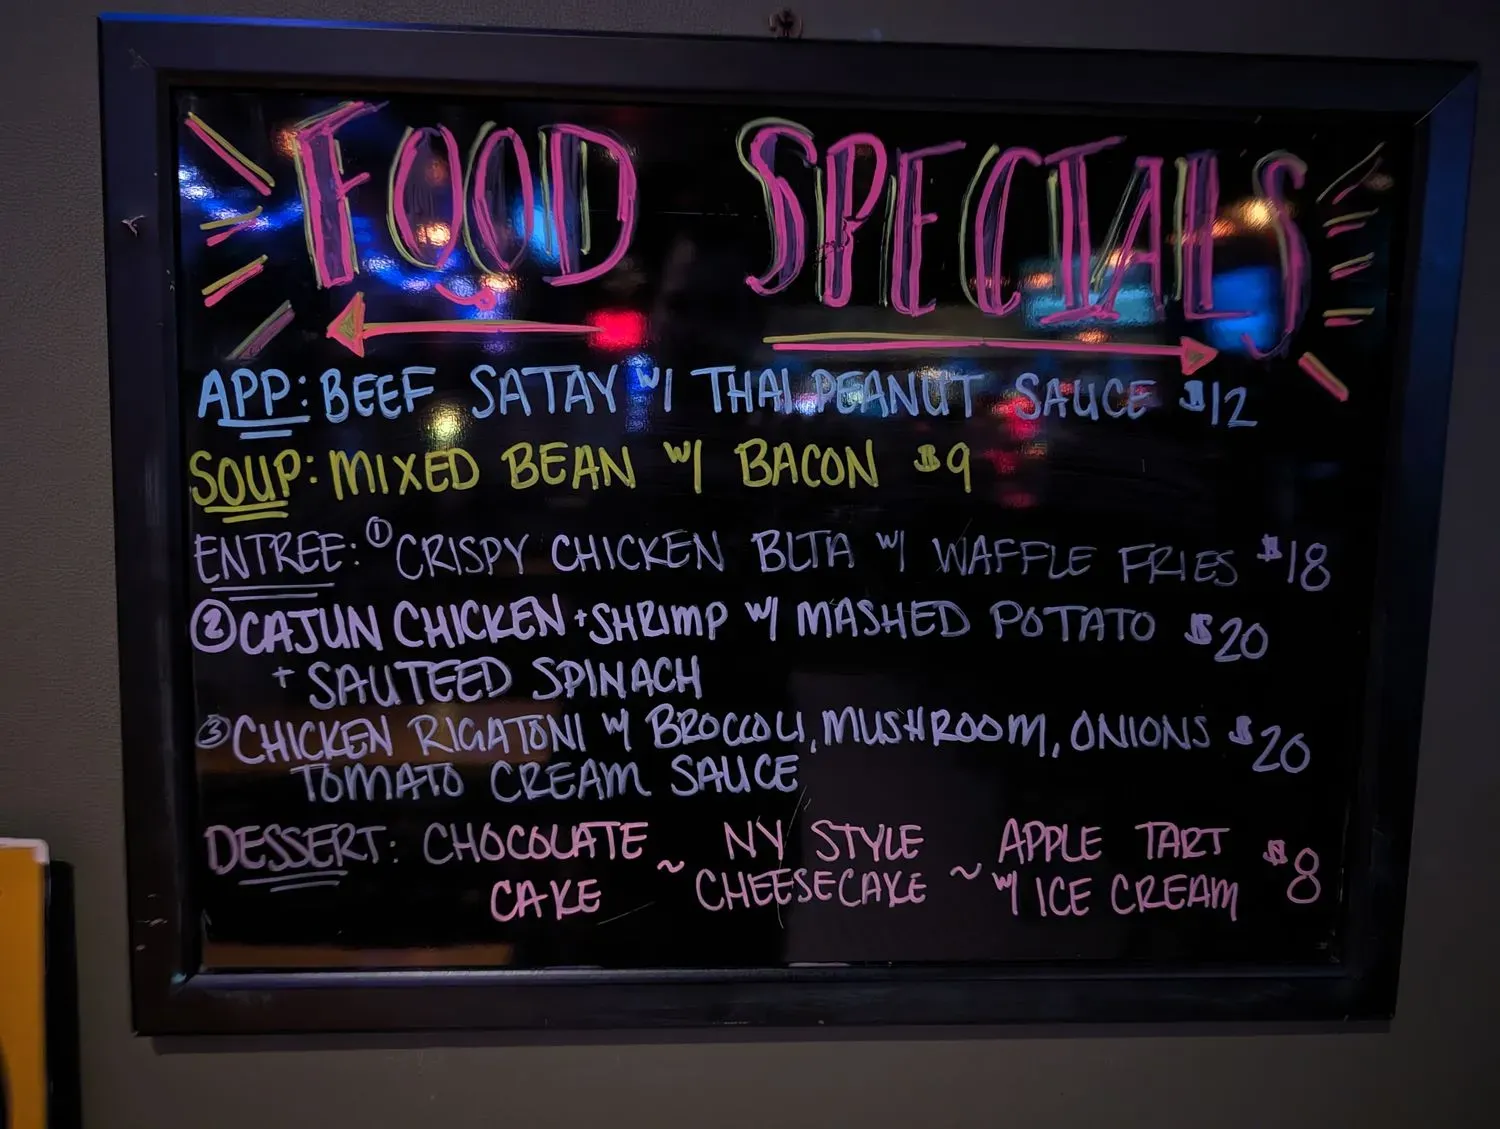 FOOD SPECIALS
APP: BEEF SATAY W/ THAI PEANUT SAUCE $12
SOUP: MIXED BEAN W/ BACON $9
ENTREE: ① CRISPY CHICKEN BLTA W/ WAFFLE FRIES $18
② CAJUN CHICKEN + SHRIMP W/ MASHED POTATO $20
+ SAUTEED SPINACH
③ CHICKEN RIGATONI W/ BROCCOLI, MUSHROOM, ONIONS $20
TOMATO CREAM SAUCE
DESSERT: CHOCOLATE CAKE ~ NY STYLE CHEESECAKE ~ APPLE TART W/ ICE CREAM $8